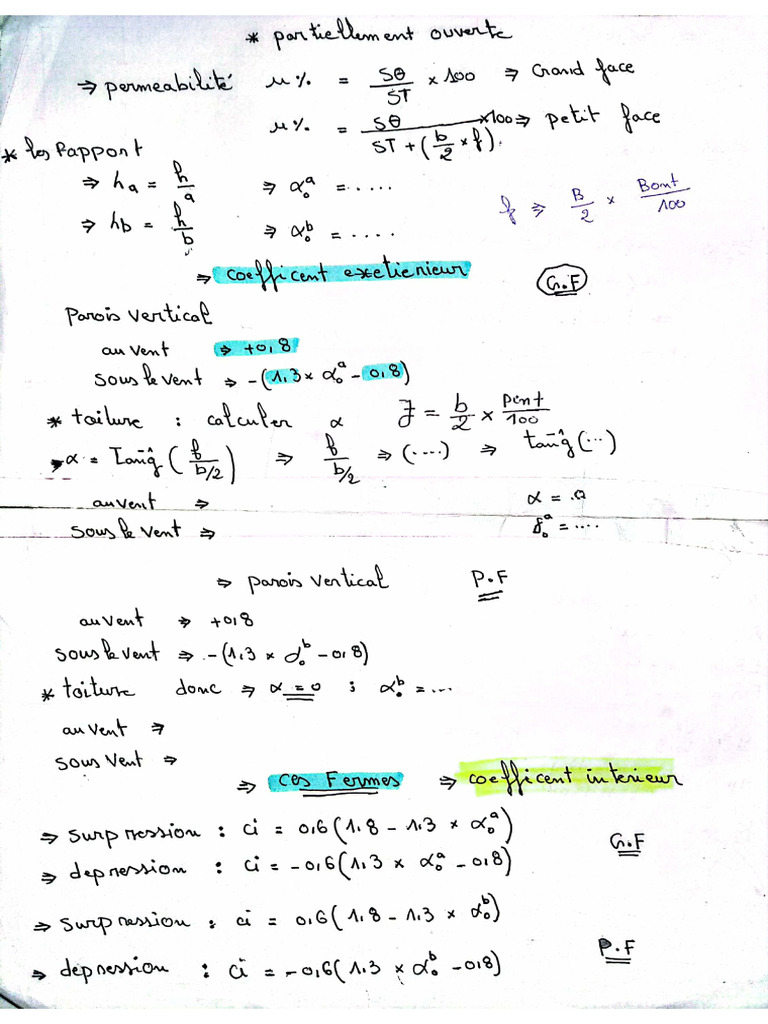 * partiellement ouverte
⇒ permeabilité μ% = Sθ/ST × 100 ⇒ Grand face
μ% = Sθ/(ST + (b/2 × f)) ×100 ⇒ petit face
* les Rapport
⇒ ha = h/a ⇒ α₀ᵃ = .....
⇒ hb = h/b ⇒ α₀ᵇ = ....
f ⇒ B/2 × Bont/100
⇒ coefficent exetierieur G.F
Parois vertical
au vent ⇒ +0,8
sous le vent ⇒ -(1,3 × α₀ᵃ - 0,8)
* toiture : calculer α f = b/2 × pent/100
α = Tang⁻¹(f/b/2) ⇒ f/b/2 ⇒ (....) ⇒ tang⁻¹(...)
au vent ⇒ α = .a
sous le vent ⇒ γ₀ᵃ = ....
⇒ parois vertical P.F
au vent ⇒ +0,8
sous le vent ⇒ -(1.3 × α₀ᵇ - 0,8)
* toiture donc ⇒ α = 0 ; α₀ᵇ = ...
au vent ⇒
sous vent ⇒
⇒ ces Fermes ⇒ coefficent interieur
⇒ surpression : ci = 0,6(1.8 - 1.3 × α₀ᵃ)
G.F
⇒ depression : ci = -0,6(1.3 × α₀ᵃ - 0,8)
⇒ surpression : ci = 0,6(1.8 - 1.3 × α₀ᵇ)
P.F
⇒ depression : ci = -0,6(1.3 × α₀ᵇ - 0,8)